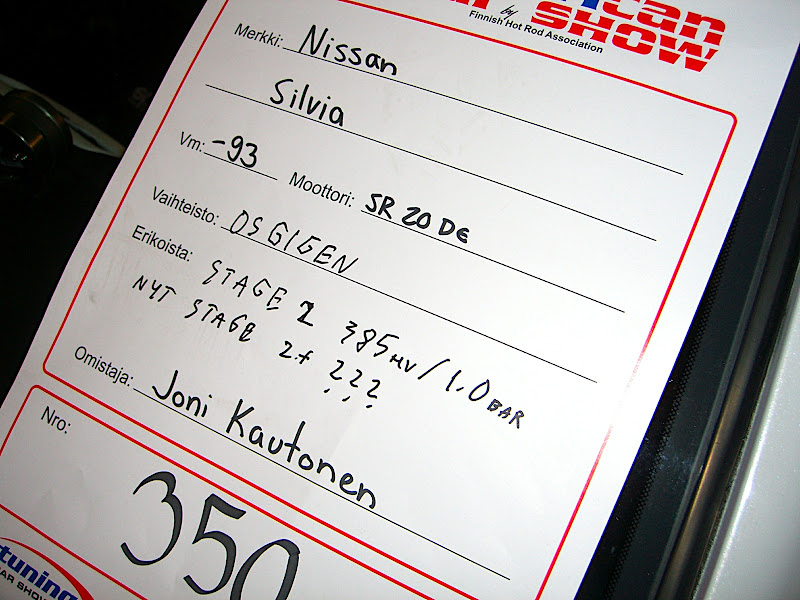 can
by SHOW
Finnish Hot Rod Association
Merkki: Nissan
Silvia
Vm: -93 Moottori: SR 20 DE
Vaihteisto: OS GIGEN
Erikoista: STAGE 2 385HV/1.0 BAR
NYT STAGE 2+ ???
Omistaja: Joni Kautonen
Nro:
350
tuning
CAR SHOW